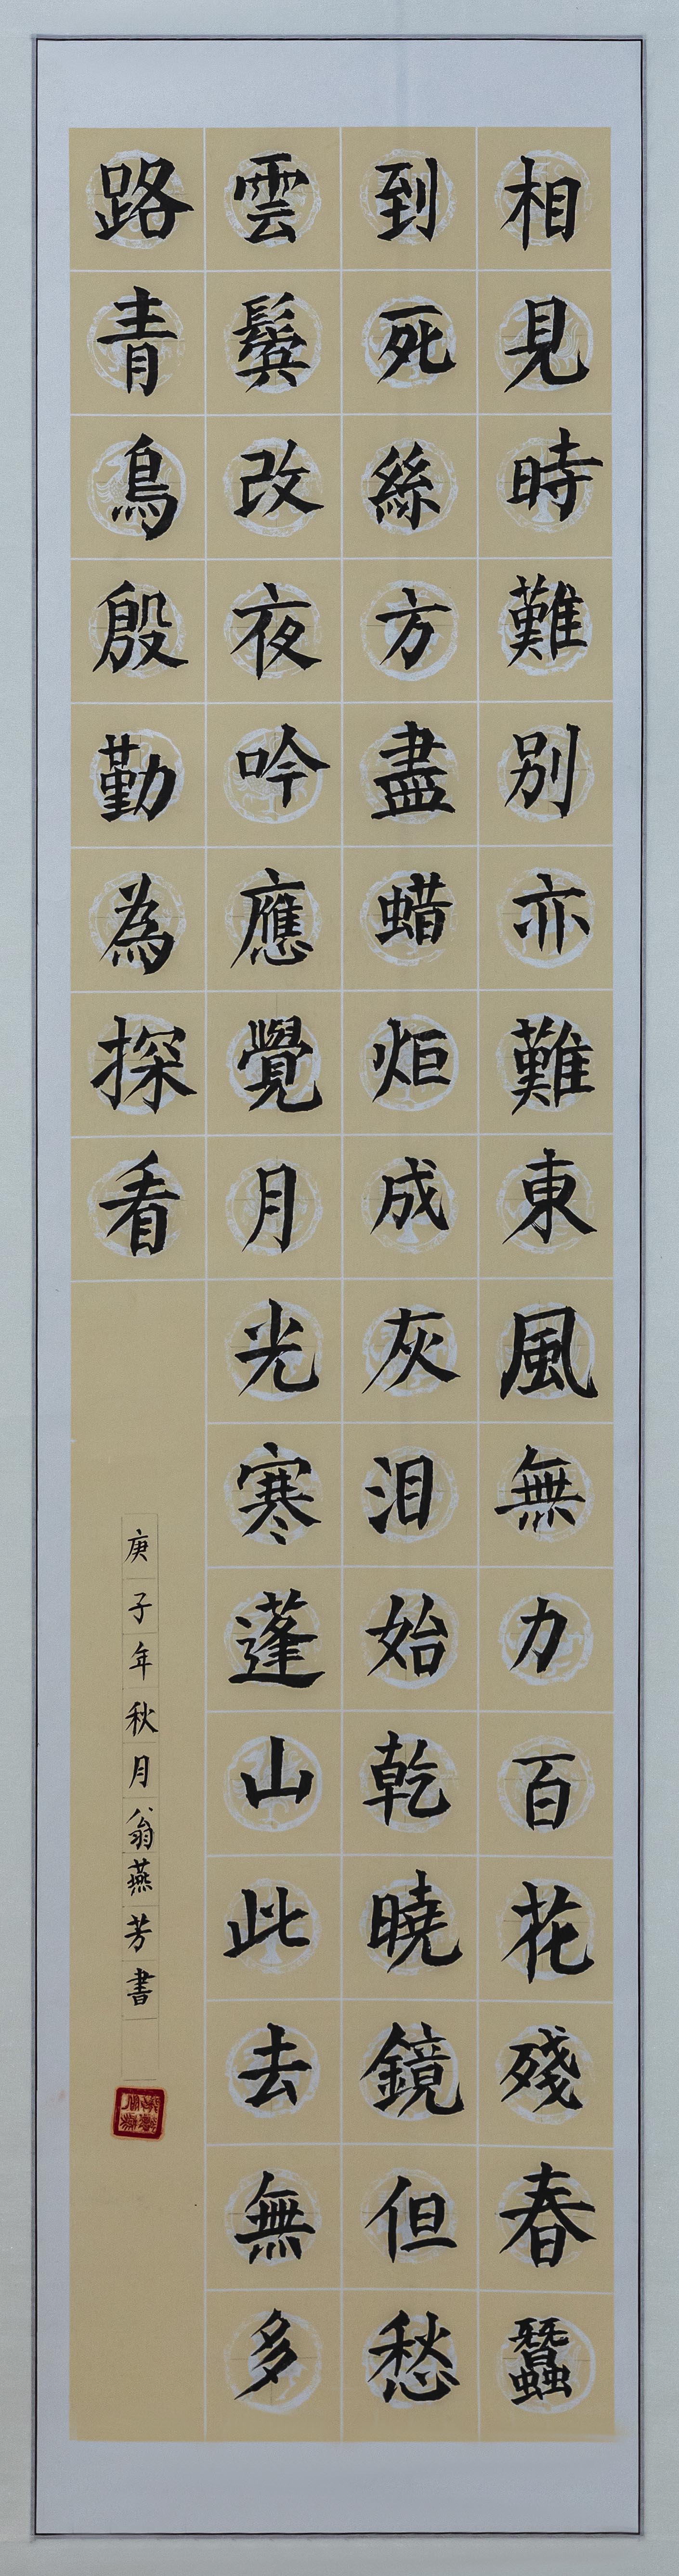 相見時難別亦難東風無力百花殘春蠶
到死絲方盡蜡炬成灰泪始乾曉鏡但愁
雲鬓改夜吟應覺月光寒蓬山此去無多
路青鳥殷勤為探看
庚子年秋月翁燕芳書